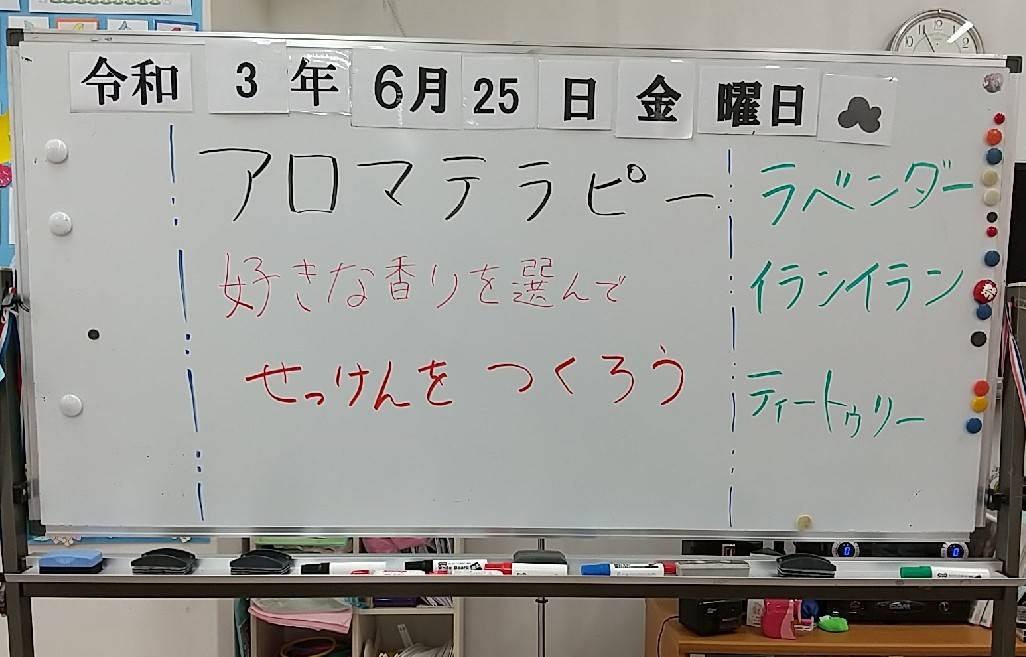 令和 3 年 6月 25 日 金 曜日
アロマテラピー
好きな香りを選んで
せっけんを つくろう
ラベンダー
イランイラン
ティートゥリー